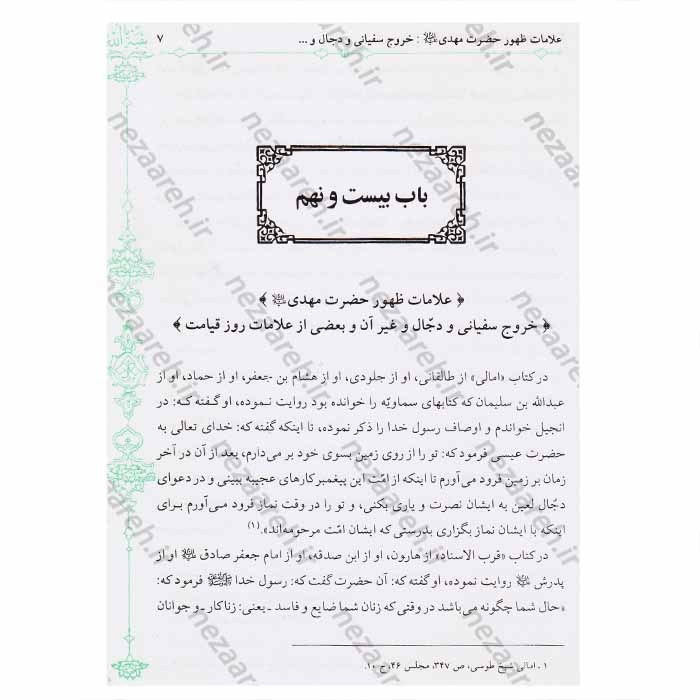 علامات ظهور حضرت مهدی : خروج سفیانی و دجال و ... ۷
باب بیست و نهم
﴿ علامات ظهور حضرت مهدی ﴾
﴿ خروج سفیانی و دجّال و غیر آن و بعضی از علامات روز قیامت ﴾
در کتاب «امالی» از طالقانی، او از جلودی، او از هشام بن جعفر، او از حماد، او از
عبدالله بن سلیمان که کتابهای سماویّه را خوانده بود روایت نموده، او گفته که: در
انجیل خواندم و اوصاف رسول خدا را ذکر نموده، تا اینکه گفته که: خدای تعالی به
حضرت عیسی فرمود که: تو را از روی زمین بسوی خود بر می‌دارم، بعد از آن در آخر
زمان بر زمین فرود می‌آورم تا اینکه از امّت این پیغمبر کارهای عجیبه ببینی و در دعوای
دجّال لعین به ایشان نصرت و یاری بکنی، و تو را در وقت نماز فرود می‌آورم برای
اینکه با ایشان نماز بگزاری بدرستی که ایشان امّت مرحومه‌اند».(۱)
در کتاب «قرب الاسناد» از هارون، او از ابن صدقه، او از امام جعفر صادق او از
پدرش روایت نموده، او گفته که: آن حضرت گفت که: رسول خدا فرمود که:
«حال شما چگونه می‌باشد در وقتی که زنان شما ضایع و فاسد ـ یعنی: زناکار ـ و جوانان
۱ ـ امالی شیخ طوسی، ص ۳۴۷، مجلس ۴۶، ح ۱۰.
nezaareh.ir